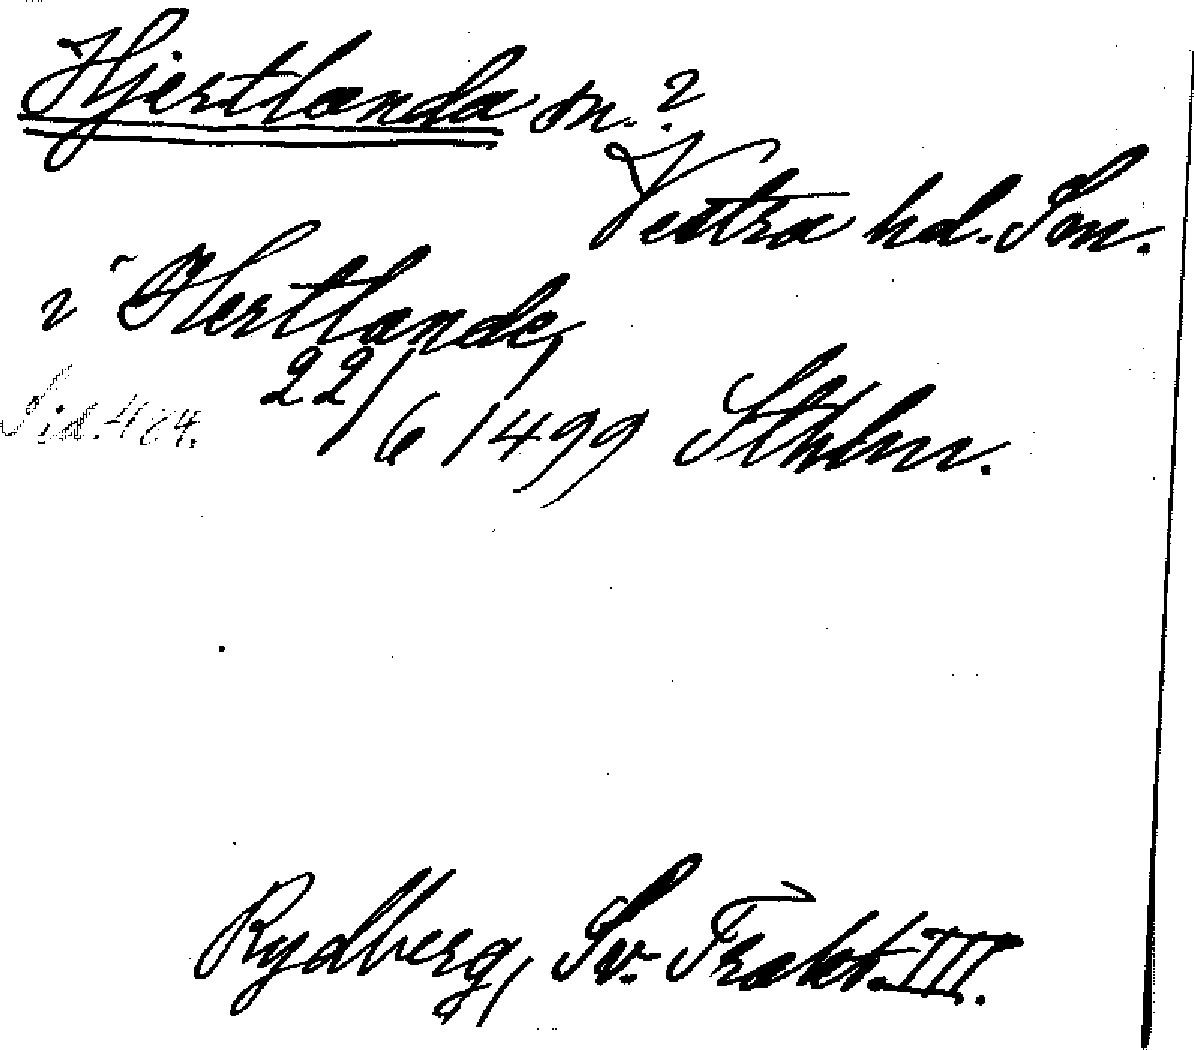 Hjertlanda sn.?
Vestra hd. Sm.
i Hertlande,
Sid. 424.
22/6 1499 Sthlm.
Rydberg, Sv. Trakt. III.